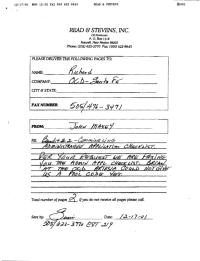 READ & STEVENS, INC.
Oil Producers
P. O. Box 1518
Roswell, New Mexico 88202
Phone: (505) 622-3770 Fax: (505) 622-8643
PLEASE DELIVER THE FOLLOWING PAGES TO:
NAME: Richard
COMPANY: OCD - Santa Fe
CITY & STATE:
FAX NUMBER: 505/476-3471
FROM: John Maxey
RE: #2 - Commingling
Administrative Application Checklist.
Per your request we are faxing
you the Admin Appl Checklist. Bryan
at the OCD Artesia could not give
us a pool code yet.
Total number of pages 2. If you do not receive all pages please call.
Sent by: Date: 12-17-01
505/622-3770 EXT 219